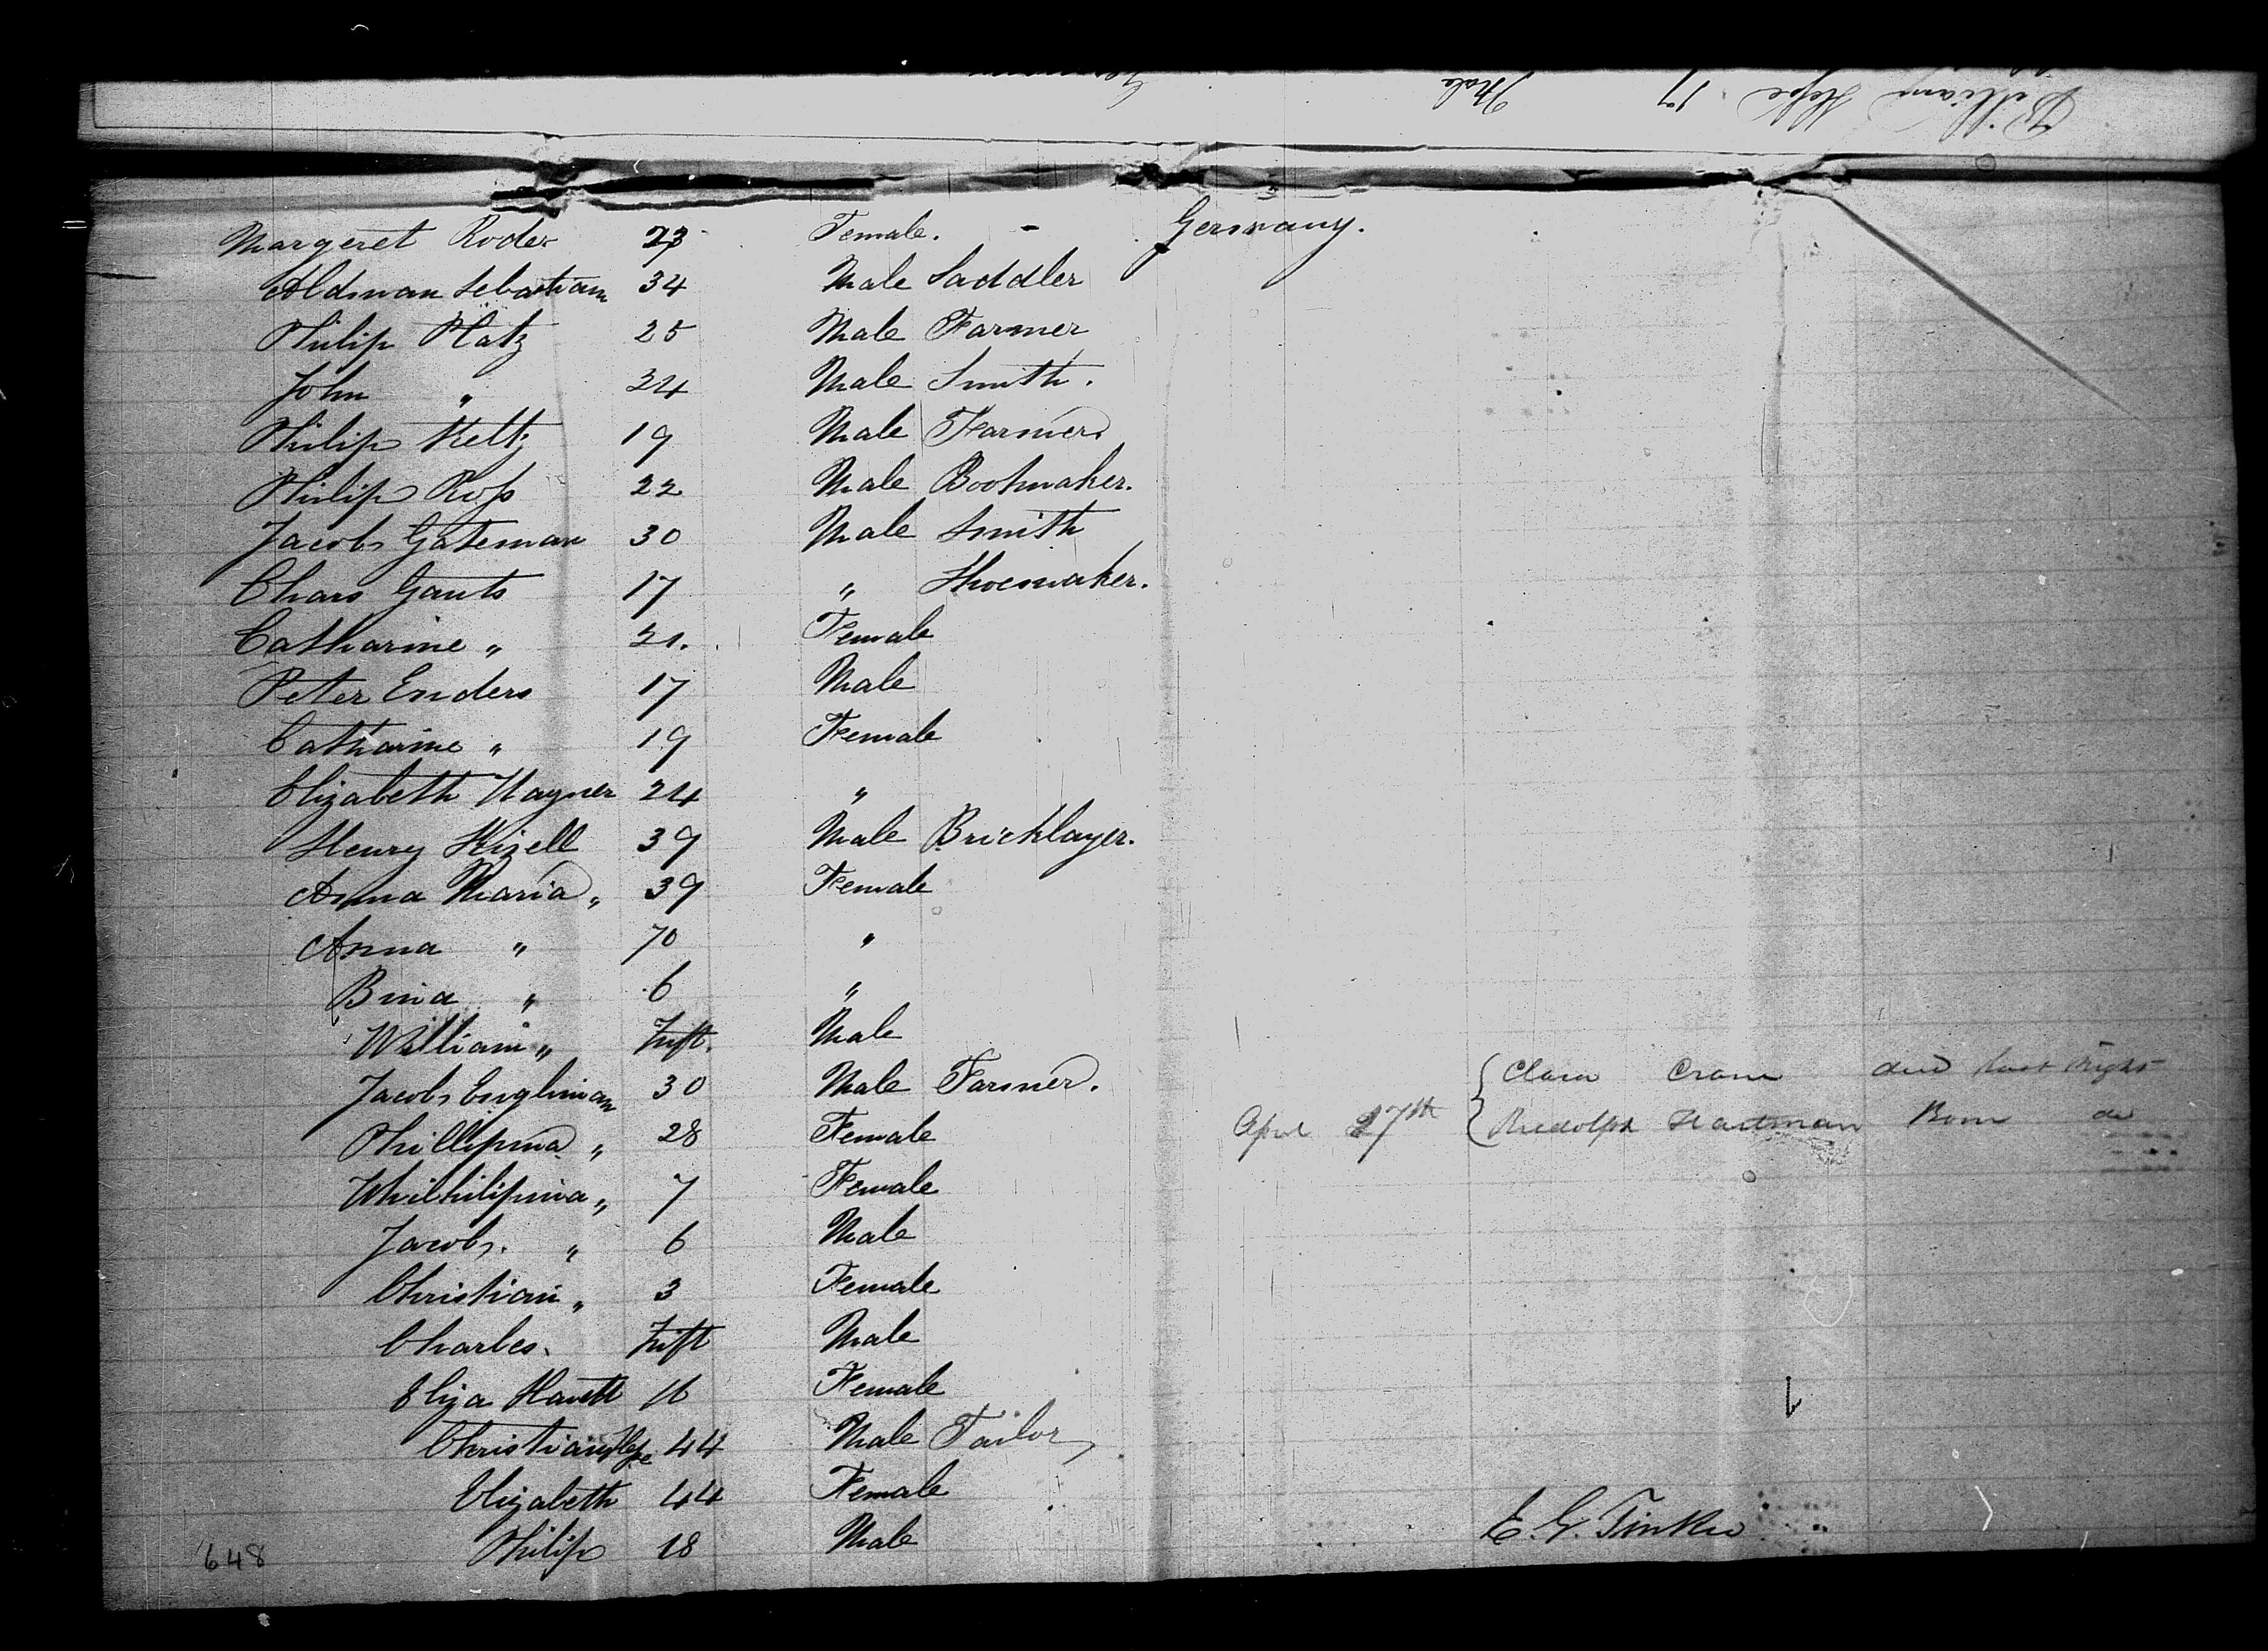 William Hesse 17 Male Germany
Margeret Roder 23 Female. - Germany.
Aldman Sebastian 34 Male Saddler
Philip Platz 25 Male Farmer
John " 24 Male Smith.
Philip Keltz 19 Male Farmer
Philip Ross 22 Male Bootmaker.
Jacob Gateman 30 Male Smith
Chars Gauts 17 " Shoemaker.
Catharine " 21. Female
Peter Enders 17 Male
Catharine " 19 Female
Elizabeth Wagner 24 "
Henry Kizell 39 Male Bricklayer.
Anna Maria " 39 Female
Anna " 70 "
Bina " 6 "
William " Inft. Male
Jacob Engliman 30 Male Farmer. Clara Crane died last night
Phillipina " 28 Female April 27th Rudolph Hartman Born do
Whilhilipina " 7 Female
Jacob. " 6 Male
Christian " 3 Female
Charles. Inft Male
Eliza Havett 16 Female
Christian Hesse 44 Male Tailor
Elizabeth 44 Female
Philip 18 Male E. G. Tinker
648